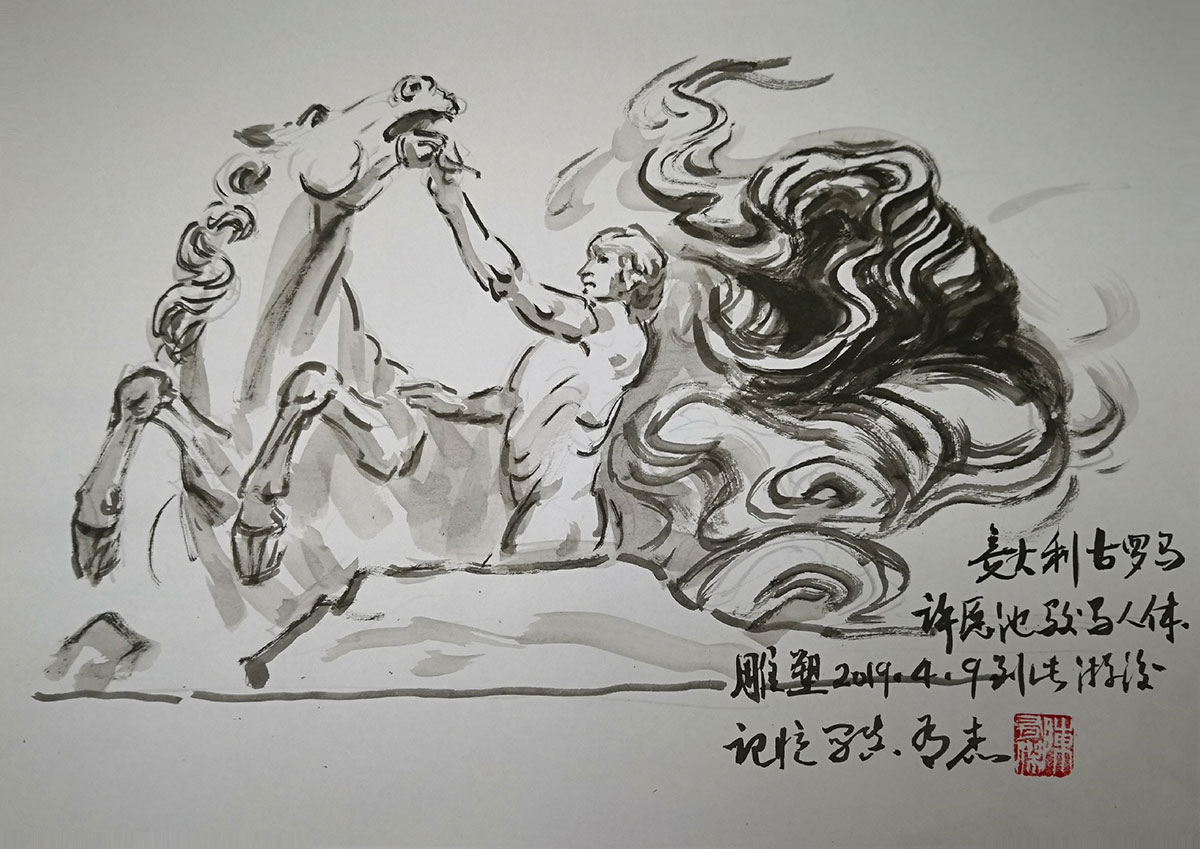 意大利古罗马
许愿池驭马人体
雕塑2019.4.9到此游后
记忆写生.有杰
陳有杰